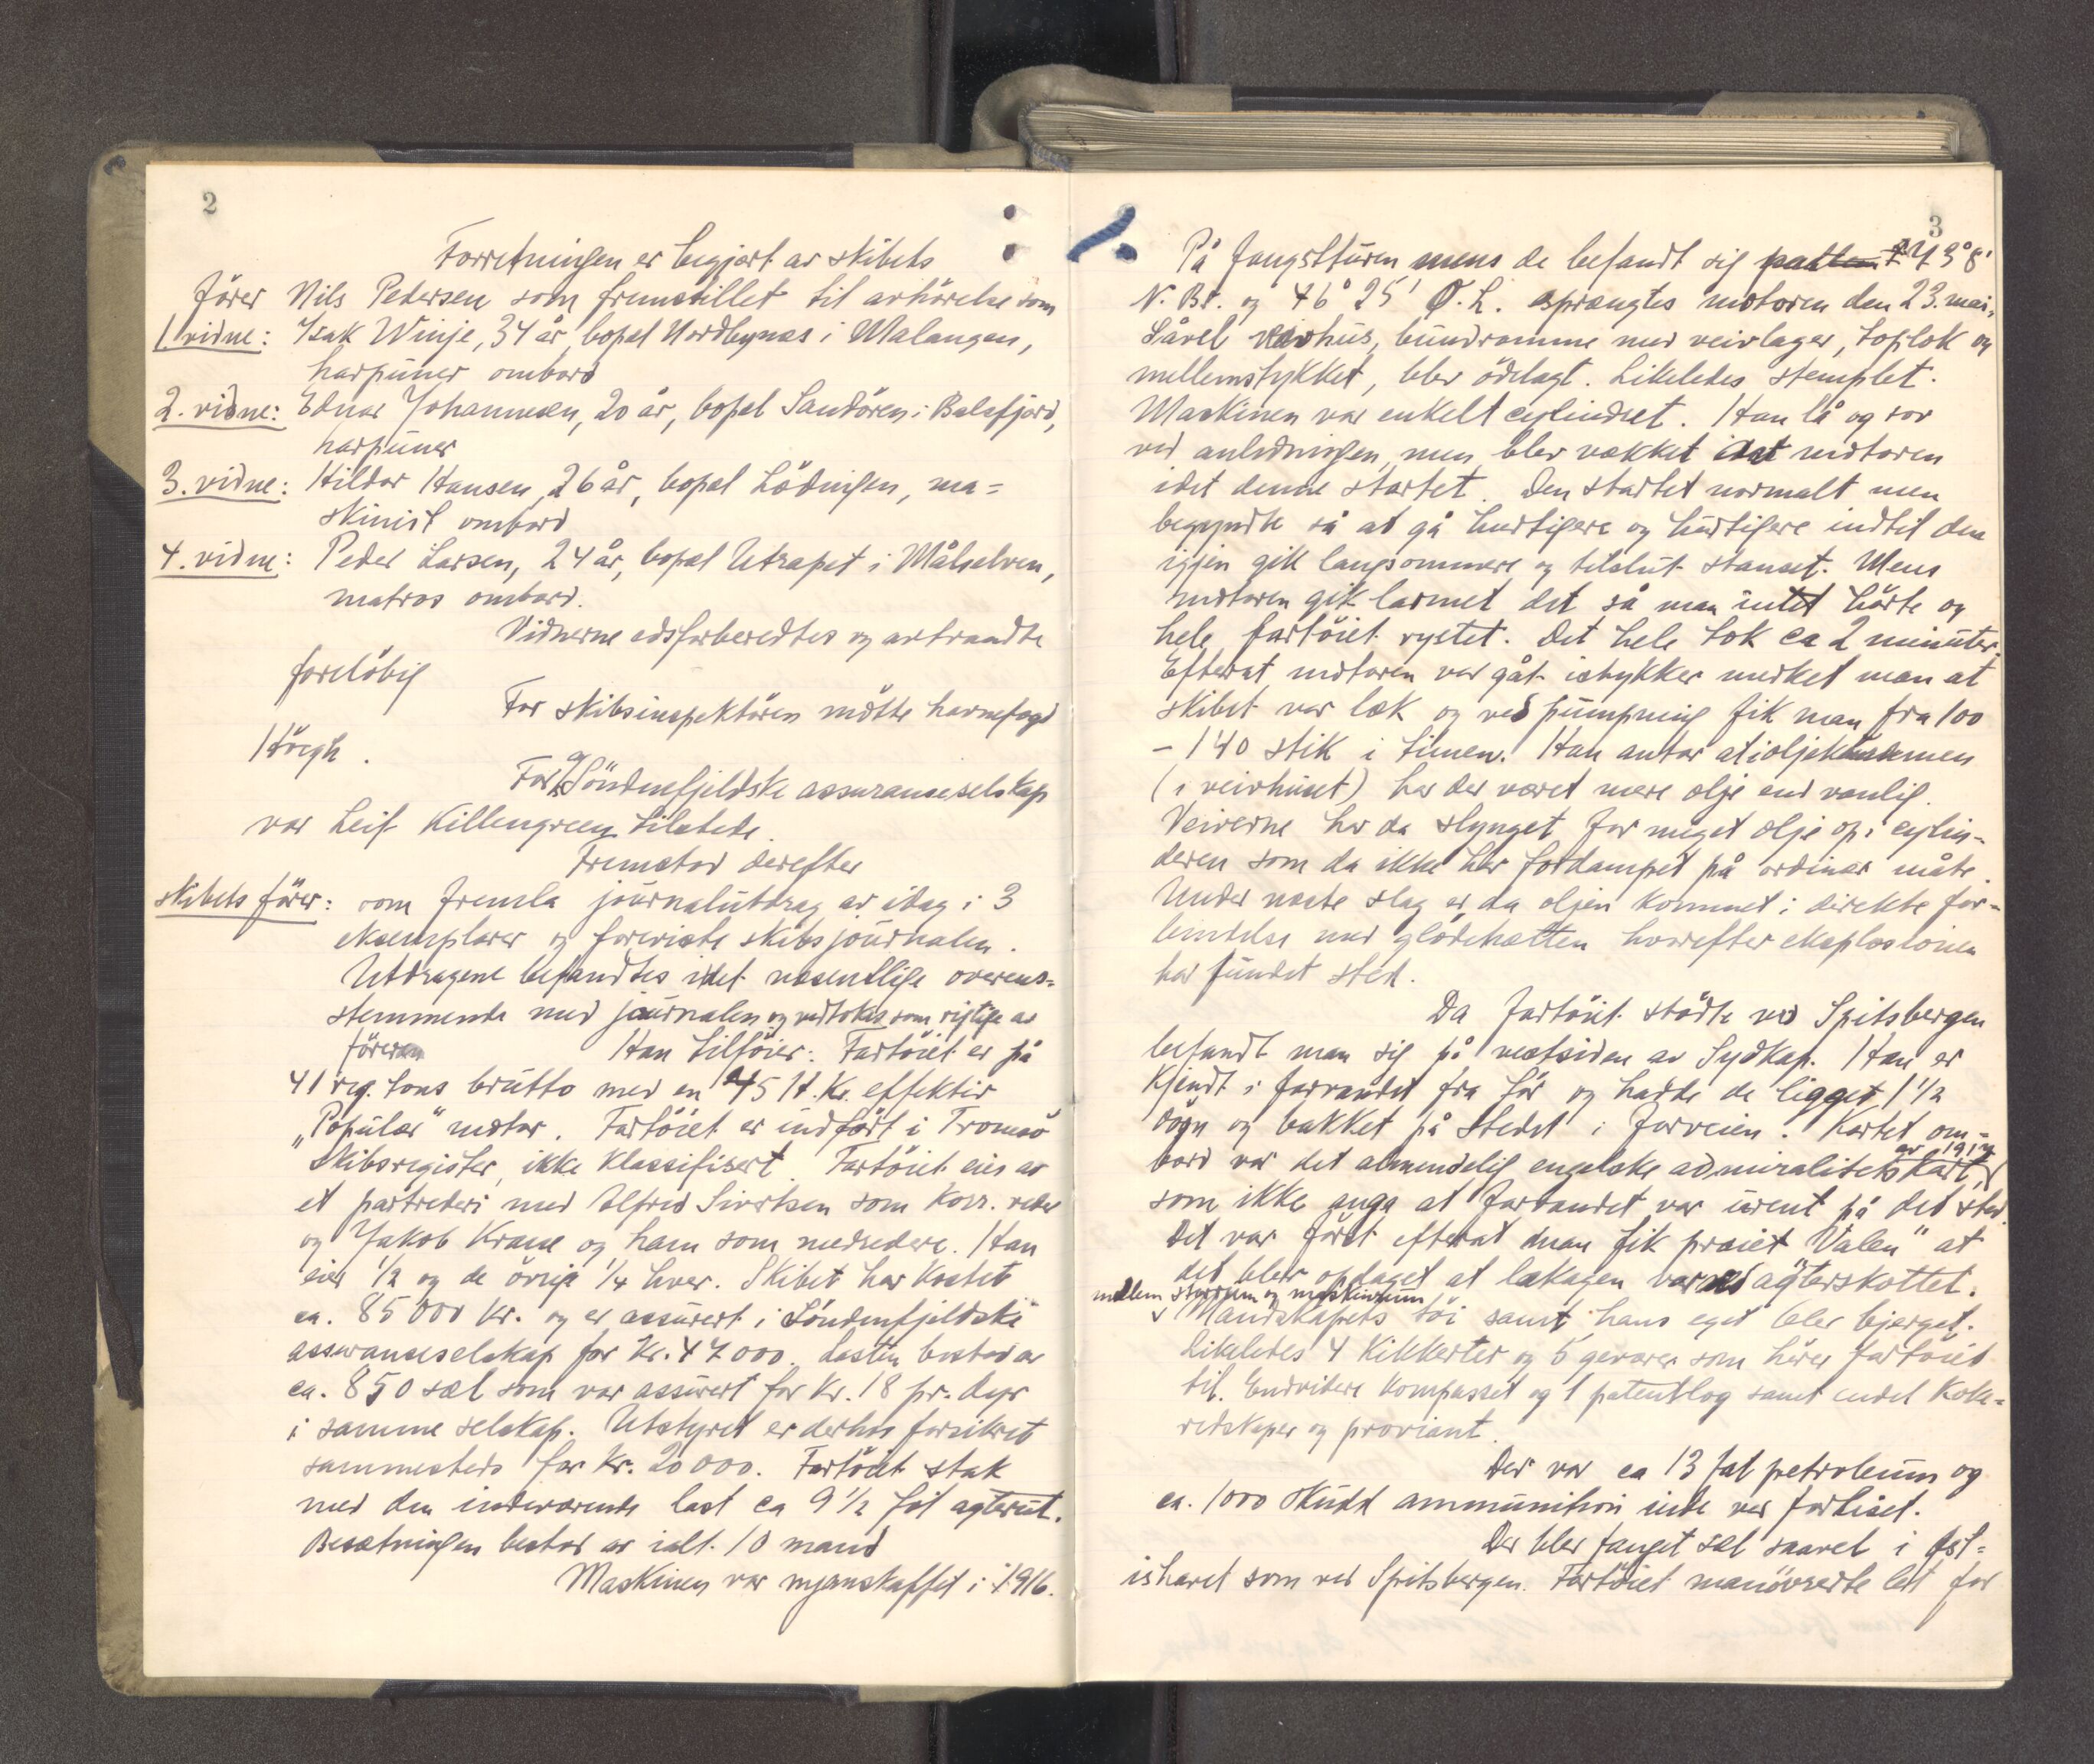 2
Forretningen er begjært av skibets
fører Nils Pedersen som fremstillet til avhørelse som
1. vidne: Isak Winje, 34 år, bopæl Nordbynæs i Malangen,
harpuner ombord
2. vidne: Edvar Johannesen, 20 år, bopæl Sandøren i Balsfjord,
harpuner
3. vidne: Hildor Hansen, 26 år, bopæl Lødingen, ma=
skinist ombord
4. vidne: Peder Larsen, 24 år, bopæl i Målselven,
matros ombord.
Vidnerne edsforberedtes og avtraadte
foreløbig
For skibsinspektøren møtte havnefogd
Høegh.
For Søndenfjeldske assuranceselskap
var Leif Killengreen tilstede.
Fremstod derefter
skibets fører: som fremla journalutdrag av idag i 3
eksemplarer og foreviste skibsjournalen.
Utdragene befandtes i det væsentlige overens=
stemmende med journalen og vedtokes som rigtige av
føreren Han tilføier: Fartøiet er på
41 reg. tons brutto med en 45 H.K. effektiv
"Populær" motor. Fartøiet er indført i Tromsø
skibsregister, ikke klassifisert. Fartøiet eies av
et partrederi med Alfred Sivertsen som korr. reder
og Jakob Krane og ham som medredere. Han
eier 1/2 og de øvrige 1/4 hver. Skibet har kostet
ca. 85 000 kr. og er assurert i Søndenfjeldske
assuranseselskap for Kr. 47 000. Lasten bestod av
ca. 850 sæl som var assurert for Kr. 18 pr. dyr
i samme selskap. Utstyret er derhos forsikret
sammesteds for Kr. 20 000. Fartøiet stak
med den indeværende last ca 9 1/2 fot agterut.
Besætningen bestod av ialt 10 mand
Maskinen var nyanskaffet i 1916.
3
På fangstturen mens de befandt sig på 73° 8'
N. Br. og 46° 25' Ø. L. sprængtes motoren den 23. mai,
Såvel veivhus, bundramme med veivlager, toplok og
mellemstykket, blev ødelagt. Likeledes stemplet.
Maskinen var enkelt cylindret. Han lå og sov
ved anledningen, men blev vækket av motoren
idet denne startet. Den startet normalt men
begyndte så at gå hurtigere og hurtigere indtil den
igjen gik langsommere og tilslut stanset. Mens
motoren gik larmet det så man intet hørte og
hele fartøiet rystet. Det hele tok ca 2 minuter.
Efterat motoren var gåt istykker merket man at
skibet var læk og ved pumpning fik man fra 100
– 140 stik i timen. Han antar at i oljekammen
(i veivhuset) har der været mere olje end vanlig.
Veiverne har da slynget for meget olje op i cylin=
deren som da ikke har fordampet på ordinær måte.
Under næste slag er da oljen kommet i direkte for=
bindelse med glødehætten hvorefter eksplosionen
har fundet sted.
Da fartøiet stødte ved Spitsbergen
befandt man sig på vestsiden av Sydkap. Han er
kjendt i farvandet fra før og hadde de ligget 1 1/2
døgn og bakket på stedet i forveien. Kartet om=
bord var det almindelig engelske admiralitetskart, av 191
som ikke anga at farvandet var urent på det sted.
Det var først efterat man fik praiet "Valen" at
det blev opdaget at lækagen var ved agterskottet.
mellem storrum og maskinrum
Mandskapets tøi samt hans eget blev bjerget.
Likeledes 4 kikkerter og 5 geværer som hører fartøiet
til. Endvidere kompasset og 1 patentlog samt endel koke=
redskaper og proviant.
Der var ca 13 fat petroleum og
ca. 1000 skudd ammunition inde ved forliset.
Der blev fanget sæl saavel i Øst=
ishavet som ved Spitsbergen. Fartøiet manøvrerte let for